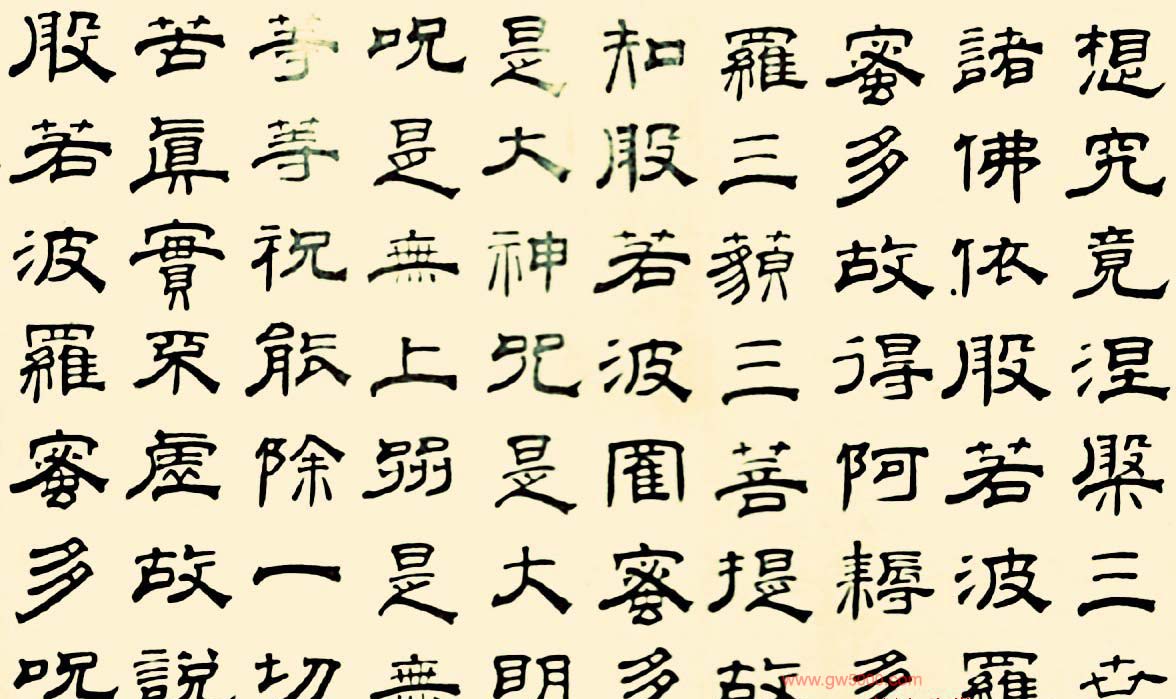 想究竟涅槃三世
諸佛依般若波羅
蜜多故得阿耨多
羅三藐三菩提故
知般若波羅蜜多
是大神咒是大明
呪是無上咒是無
等等祝能除一切
苦眞實不虛故說
般若波羅蜜多呪
www.gw5000.com